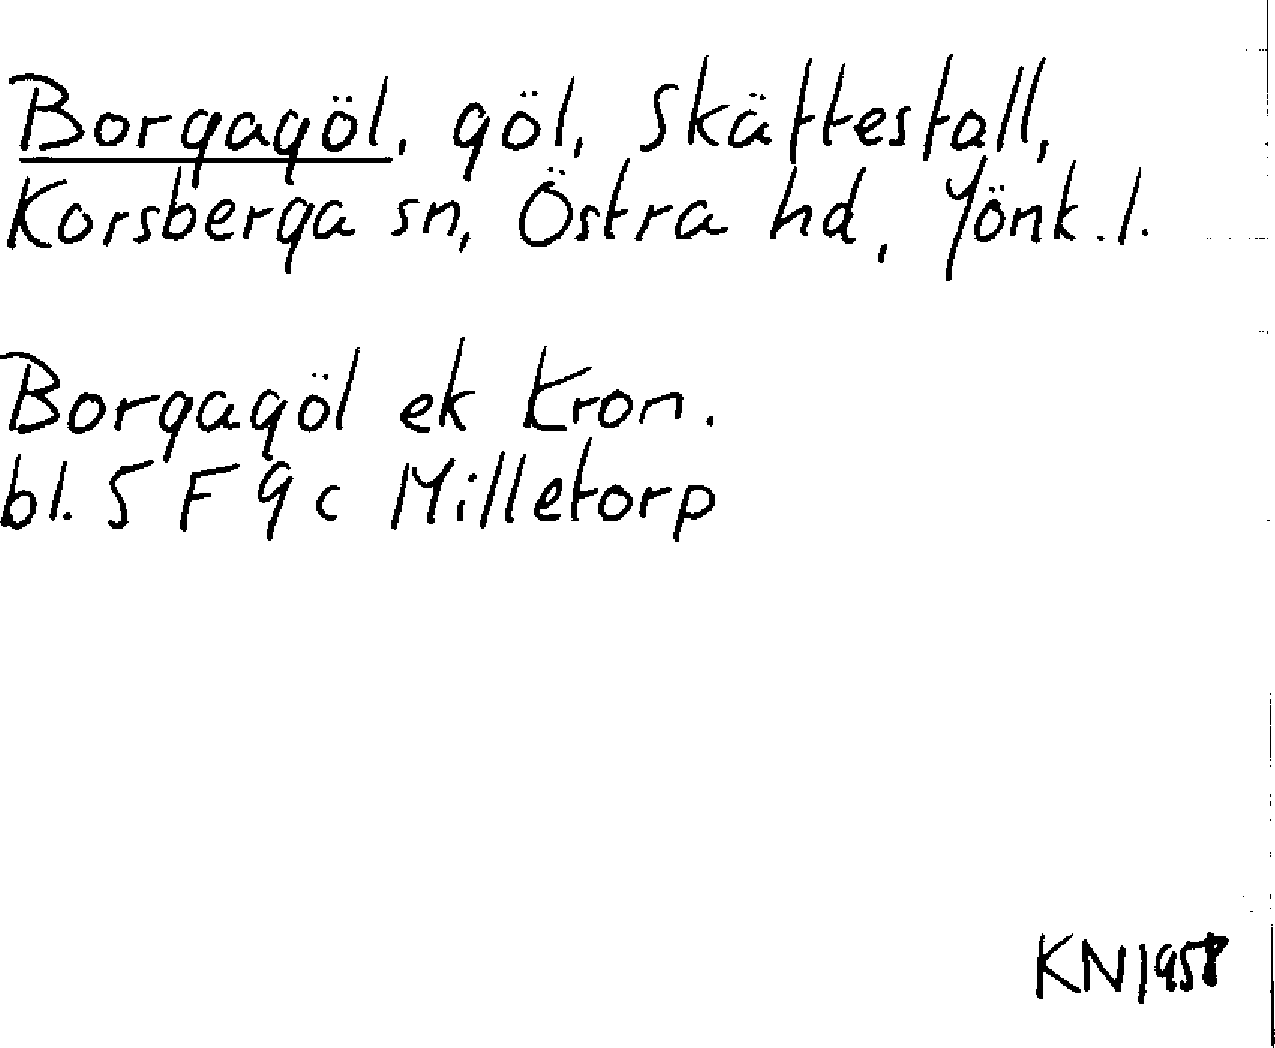 Borgagöl, göl, Skättestall,
Korsberga sn, Östra hd, Jönk. l.
Borgagöl ek Kron.
bl. 5 F 9 c Milletorp
KN 1958